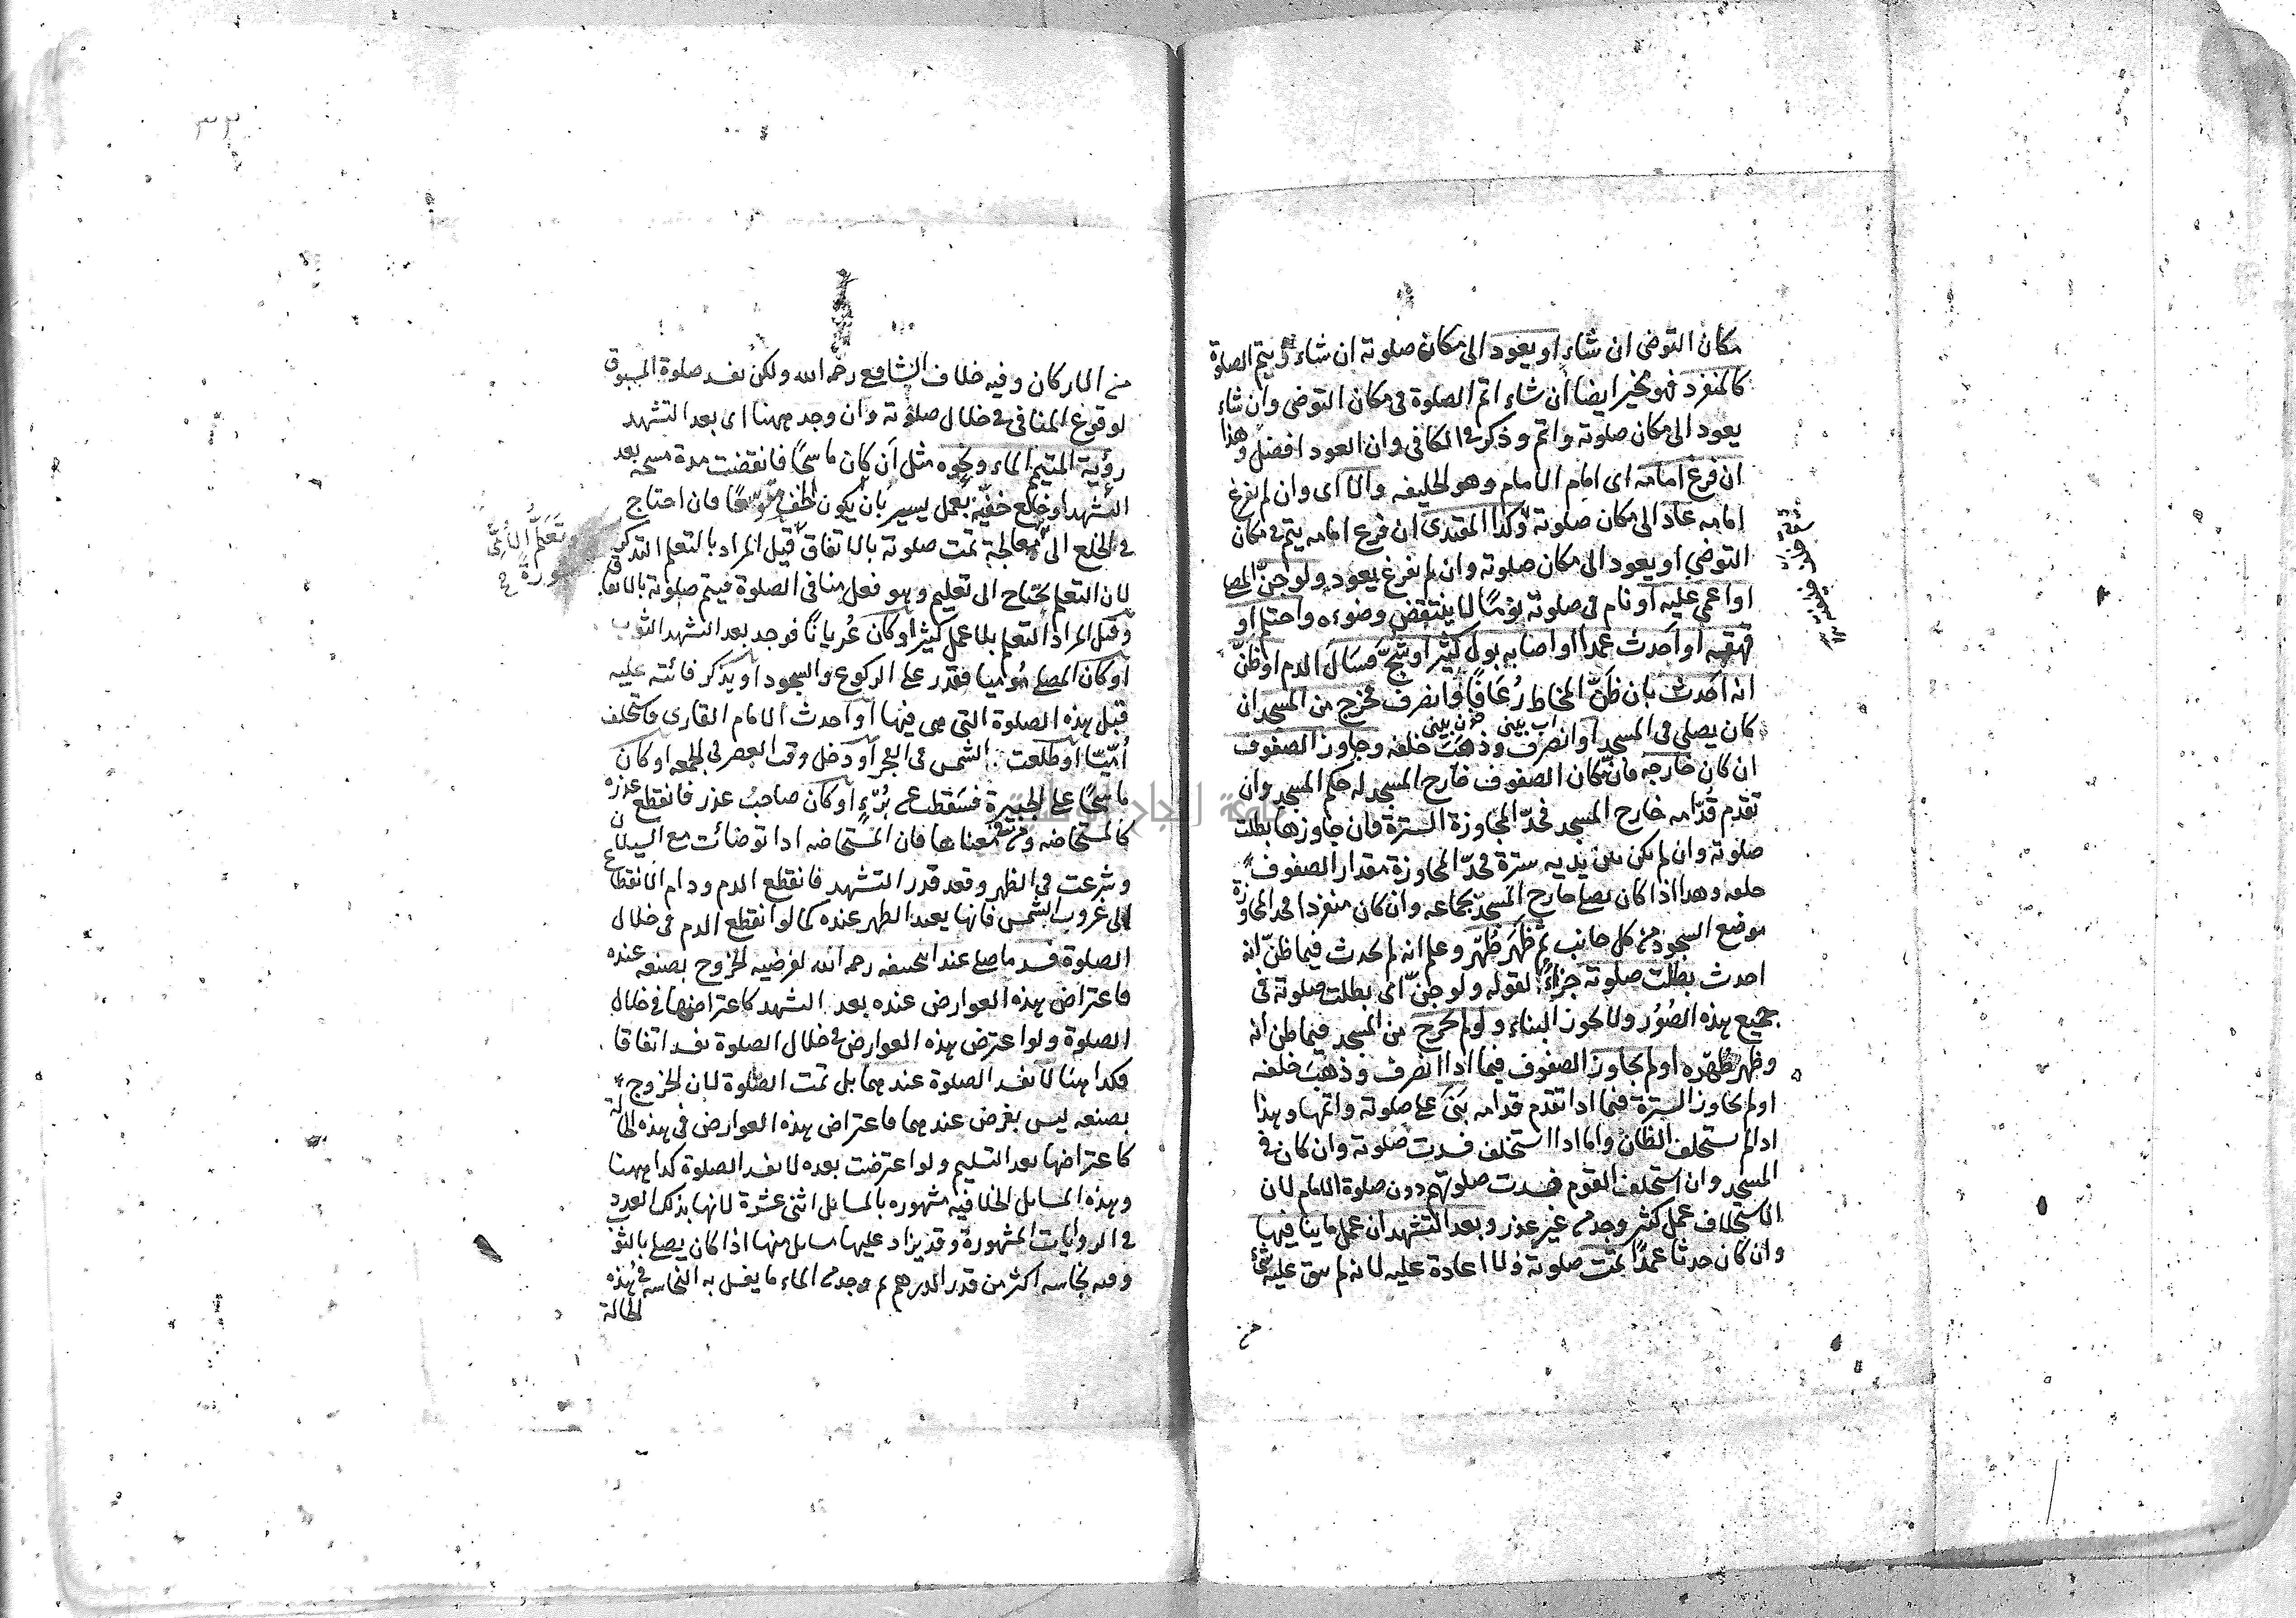 مكان التوضى ان شاء او يعود الى مكان صلوته ان شاء ويتم الصلوة
كالمنفرد فهو مخير ايضا ان شاء اتم الصلوة فى مكان التوضى وان شاء
يعود الى مكان صلوته واتم وذكر فى الكافى وان العود افضل وهذا
ان فرغ امامه اى امام الامام وهو الخليفه والا اى وان لم يفرغ
امامه عاد الى مكان صلوته وكذا المقتدى ان فرغ امامه يتم فى مكان
التوضي او يعود الى مكان صلوته وان لم يفرغ يعود ولو جنّ المصلى
او اغمى عليه او نام فى صلوته نومًا لا ينتقض وضوءه واحتلم او
قهقه او احدث عمدا او اصابه بول كثير او شجّ فسَالَ الدم او ظنّ
انه احدث بان ظنّ المخاط رُعَافًا فانصرف فخرج من المسجد ان
كان يصلى فى المسجد او انصرف وذهبَ خلفه وجاوز الصفوف
ان كان خارجه فان مكان الصفوف خارج المسجد له حكم المسجد وان
تقدم قدّامه خارج المسجد فحدّ المجاوزة السترة فان جاوزها بطلت
صلوته وان لم يكن بين يديه سترة فحدّ المجاوزة مقدار الصفوف
خلفه وهذا اذا كان يصلى خارج المسجد بجماعه وان كان منفردا فحد المجاوزة
موضع السجود من كل جانب ثم ظهَرَ طُهره وعلم انه لم يحدث فيما ظنّ انه
احدث بطلت صلوته جزاءً لقوله ولو جنّ اى بطلت صلوته فى
جميع هذه الصُوَر ولا يجوز البناء ولو لم يخرج من المسجد فيما ظن انه
وظهر طُهره او لم يجاوز الصفوف فيما اذا انصرف وذهبَ خلفه
او لم يجاوز السترة فيما اذا تقدم قدامه بَنَى على صلوته واتمها وهذا
اذا لم يستخلف الظان واما اذا استخلف فسدت صلوته وان كان فى
المسجد وان استخلف القوم فسدت صلوتهم دون صلوة الامام لان
الاستخلاف عمل كثير وجد من غير عذر وبعد التشهد ان عمل ما ينافيها
وان كان حدثا عمدًا تمت صلوته ولا اعادة عليه لانه لم يبق عليه شئ
من
من الاركان وفيه خلاف الشافعى رحمه الله ولكن يفسد صلوة المسبوق
لوقوع المنافى فى خلال صلوته وان وجد ههنا اى بعد التشهد
رؤية المتيمم الماء ونحوه مثل ان كان ماسحًا فانقضت مدة مسحه بعد
التشهد او خلع خفيّه بعمل يسير بان يكون الخف متوسّعًا فان احتاج
فى الخلع الى معالجة تمت صلوته بالاتفاق قيل المراد بالتعلم التذكر
وتعلّم الأمّى سورة
لان التعلم يحتاج الى تعليم وهو فعل منافى الصلوة فيتم صلوته بالاتفاق
وقيل المراد التعلم بلا عمل كثير او كان عُريانًا فوجد بعد التشهد الثوب
او كان المصلى مُوميا فقدر على الركوع والسجود او يذكر فائتة عليه
قبل هذه الصلوة التى هى فيها او احدث الامام القارى فاستخلف
اُمّيّا او طلعت الشمس فى الفجر او دخل وقت العصر فى الجمعه او كان
ماسحًا على الجبيرة فسَقطت عن بُرْءٍ او كان صاحبُ عذر فانقطع عذره
كالمستحاضه ومن فى معناها فان المستحاضه اذا توضأت مع السيلان
وشرعت فى الظهر وقعد قدر التشهد فانقطع الدم ودام الانقطاع
الى غروب الشمس فانها يعيد الظهر عنده كما لو انقطع الدم فى خلال
الصلوة فسد ما صلى عند ابى حنيفه رحمه الله لفرضيه الخروج بصنعه عنده
فاعتراض هذه العوارض عنده بعد التشهد كاعتراضها فى خلال
الصلوة ولو اعترض هذه العوارض فى خلال الصلوة يفسد اتفاقا
فكذا ههنا لا يفسد الصلوة عندهما بل تمت الصلوة لان الخروج
بصنعه ليس بفرض عندهما فاعتراض هذه العوارض فى هذه الحالة
كاعتراضها بعد التسليم ولو اعترضت بعده لا يفسد الصلوة كذا ههنا
وهذه المسايل الخلافيه مشهوره بالمسائل اثنى عشرة لانها بذلك العدد
فى الروايات المشهورة وقد يزاد عليها مسايل منها اذا كان يصلى بالثوب
وفيه نجاسه اكثر من قدر الدرهم ثم وجد من الماء ما يغسل به النجاسه فى هذه
الحالة